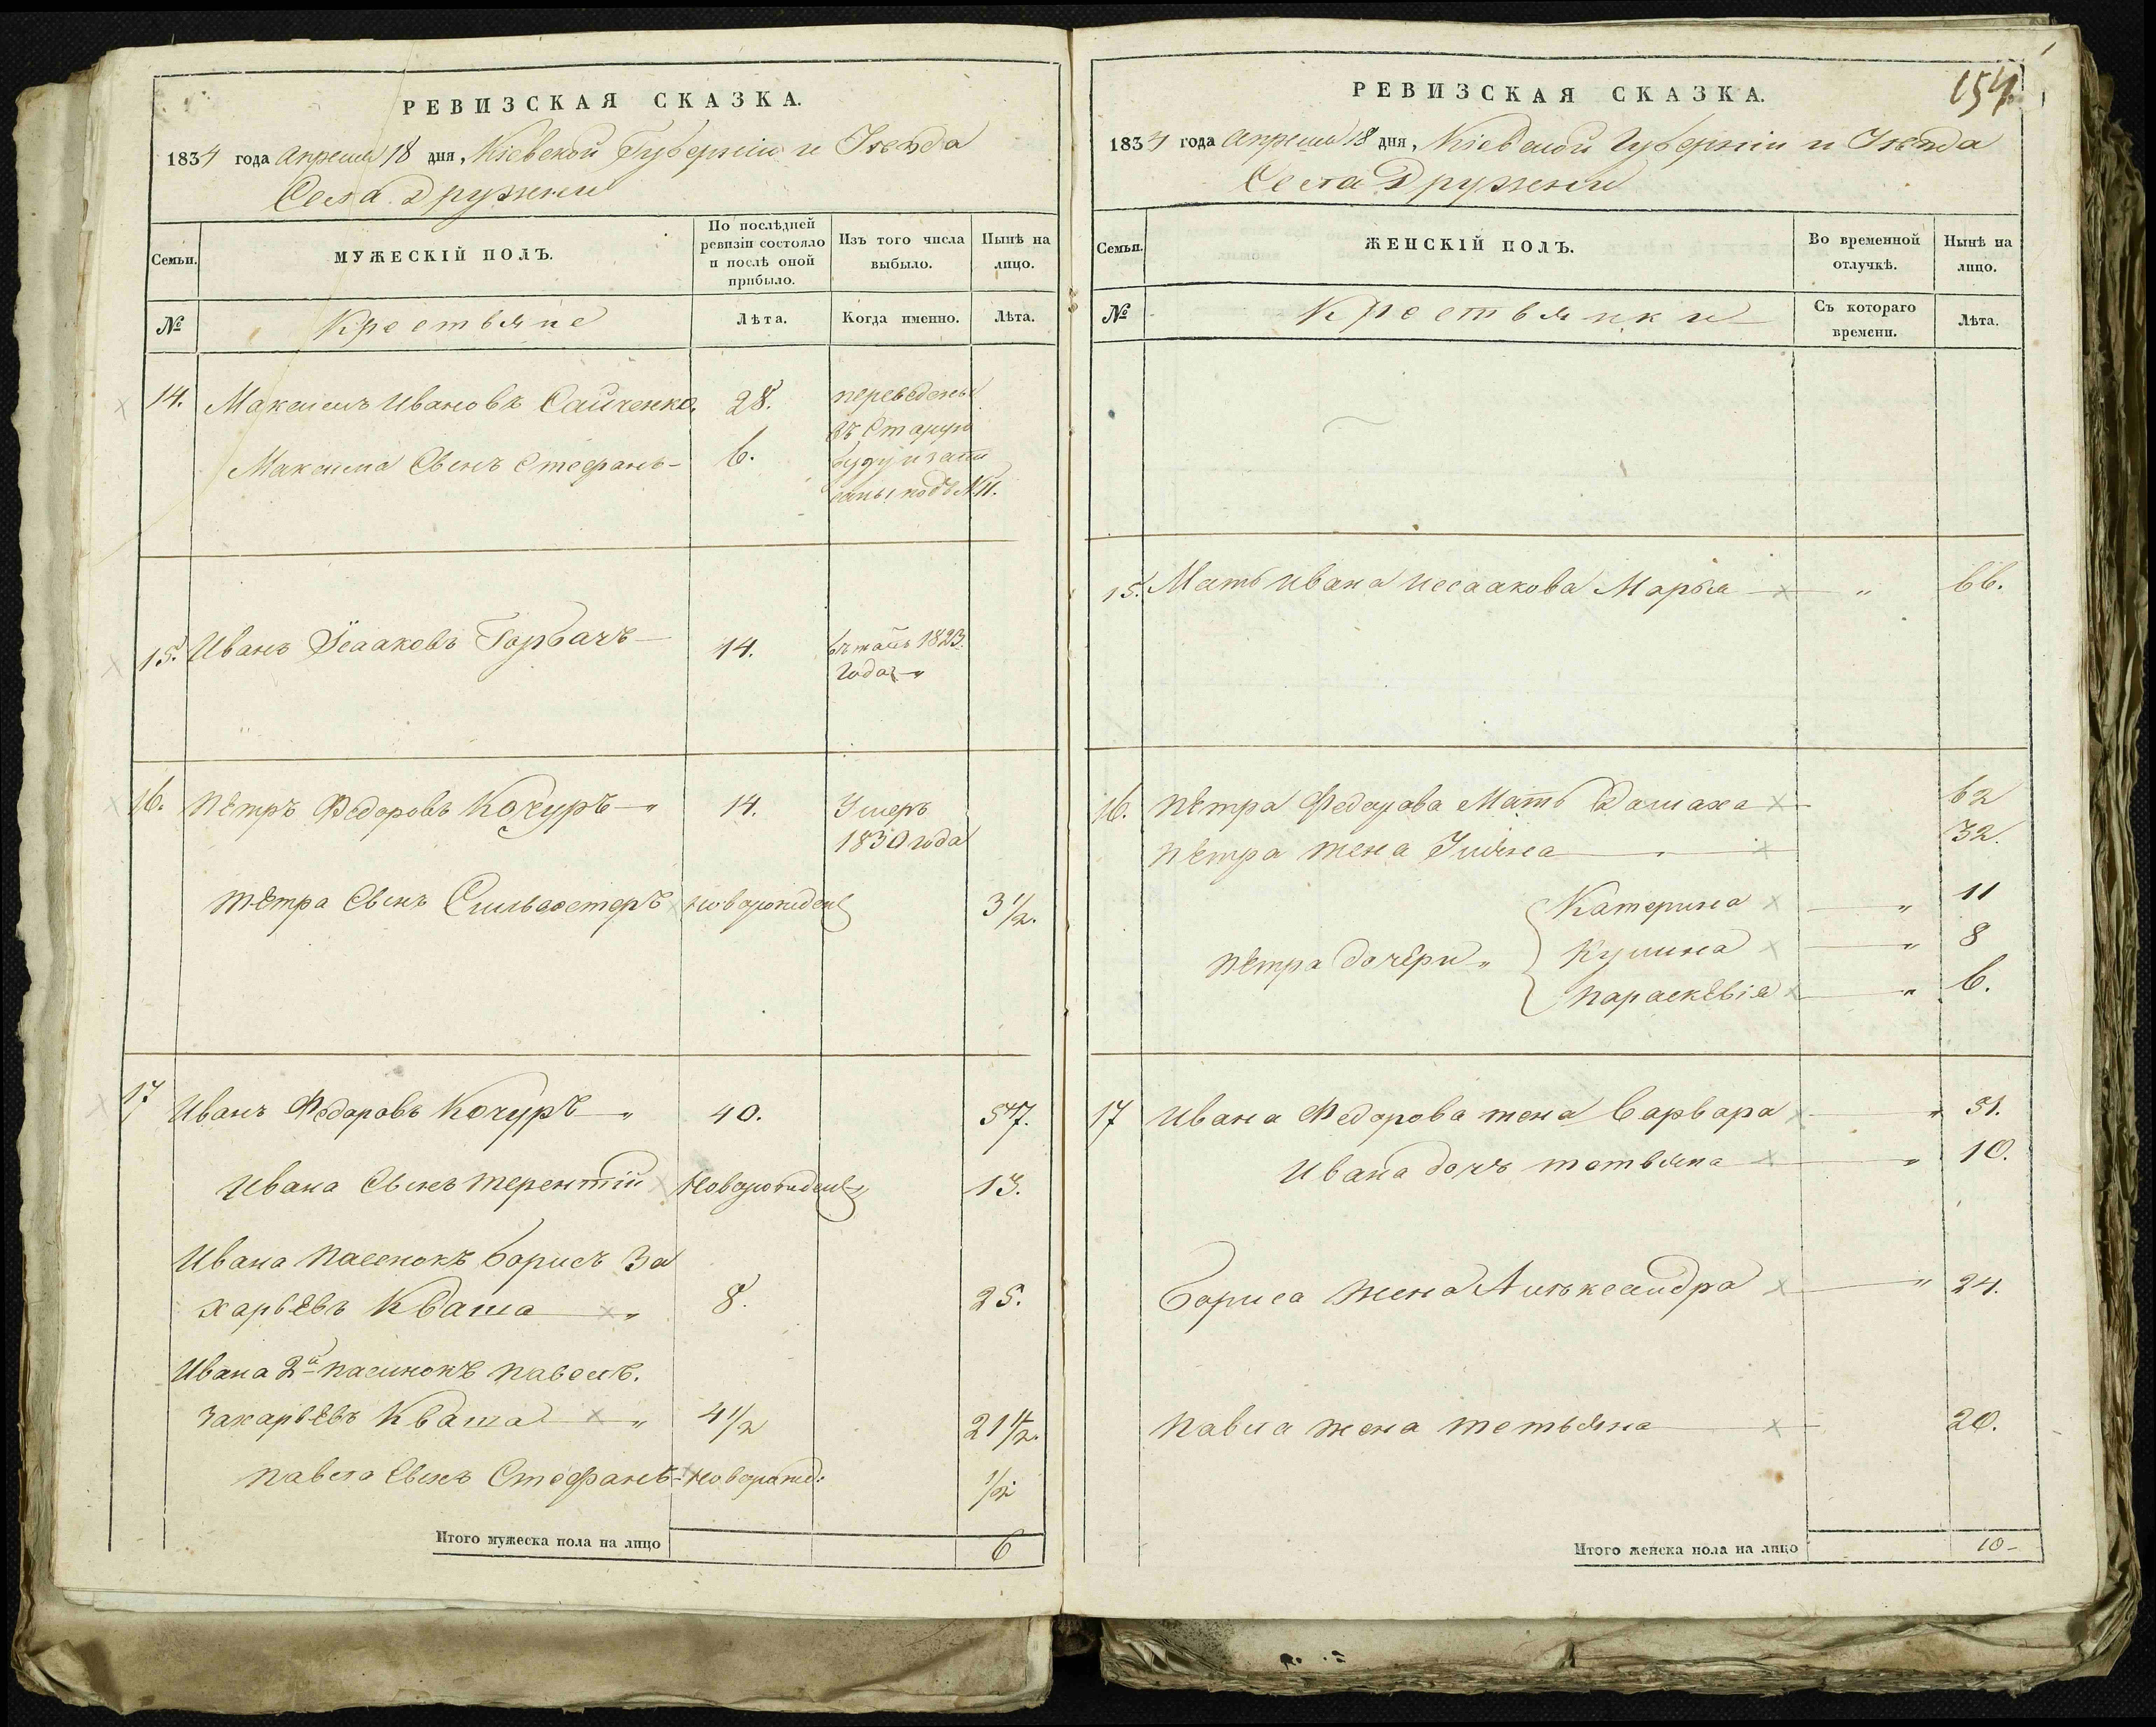 РЕВИЗСКАЯ СКАЗКА.
1834 года апреля 18 дня, Кіевской Губерніи и Уезда
Села Дружни
Семьи.
МУЖЕСКІЙ ПОЛЪ.
По послѣдней ревизіи состояло и послѣ оной прибыло.
Изъ того числа выбыло.
Нынѣ на лицо.
№
Крестьяне
Лѣта.
Когда именно.
Лѣта.
14. Максимъ Ивановъ Сайченко. 28. переведены
въ Старую
Максима Сынъ Стефанъ 6. Буду и запи
саны подъ № 11.
15. Иванъ Ісааковъ Горбачъ 14. 1823.
года
16. Пѣтръ Федоровъ Кочуръ 14. Умеръ
1830 года
Пѣтра Сынъ Сильвестеръ новорожден 3 1/2.
17 Иванъ Федоровъ Кочуръ 40. 57.
Ивана Сынъ Терентій Новорожден 13.
Ивана Пасенокъ Борисъ За
харьевъ Кваша 8. 25.
Ивана 2й пасинокъ Павелъ.
Захарьевъ Кваша 4 1/2 21 1/2.
Павла Сынъ Стефанъ новорожд: 1/2
Итого мужеска пола на лицо 6
154.
РЕВИЗСКАЯ СКАЗКА.
1834 года апреля 18 дня, Кіевской Губерніи и Уезда
Села Дружни
Семьи.
ЖЕНСКІЙ ПОЛЪ.
Во временной отлучкѣ.
Нынѣ на лицо.
№
Крестьянки
Съ котораго времени.
Лѣта.
15. Мать Ивана Исаакова Марья " 66.
16. Пѣтра Федорова Мать 62
Пѣтра жена Уляна 32.
Катерина " 11
Пѣтра дочери " Кулина " 8
Параскевія " 6.
17 Ивана Федорова жена Варвара " 51.
Ивана дочъ Тетьяна " 10.
Бориса жена Алькса́ндра " 24.
Павла жена Тетьяна 20.
Итого женска пола на лицо 10